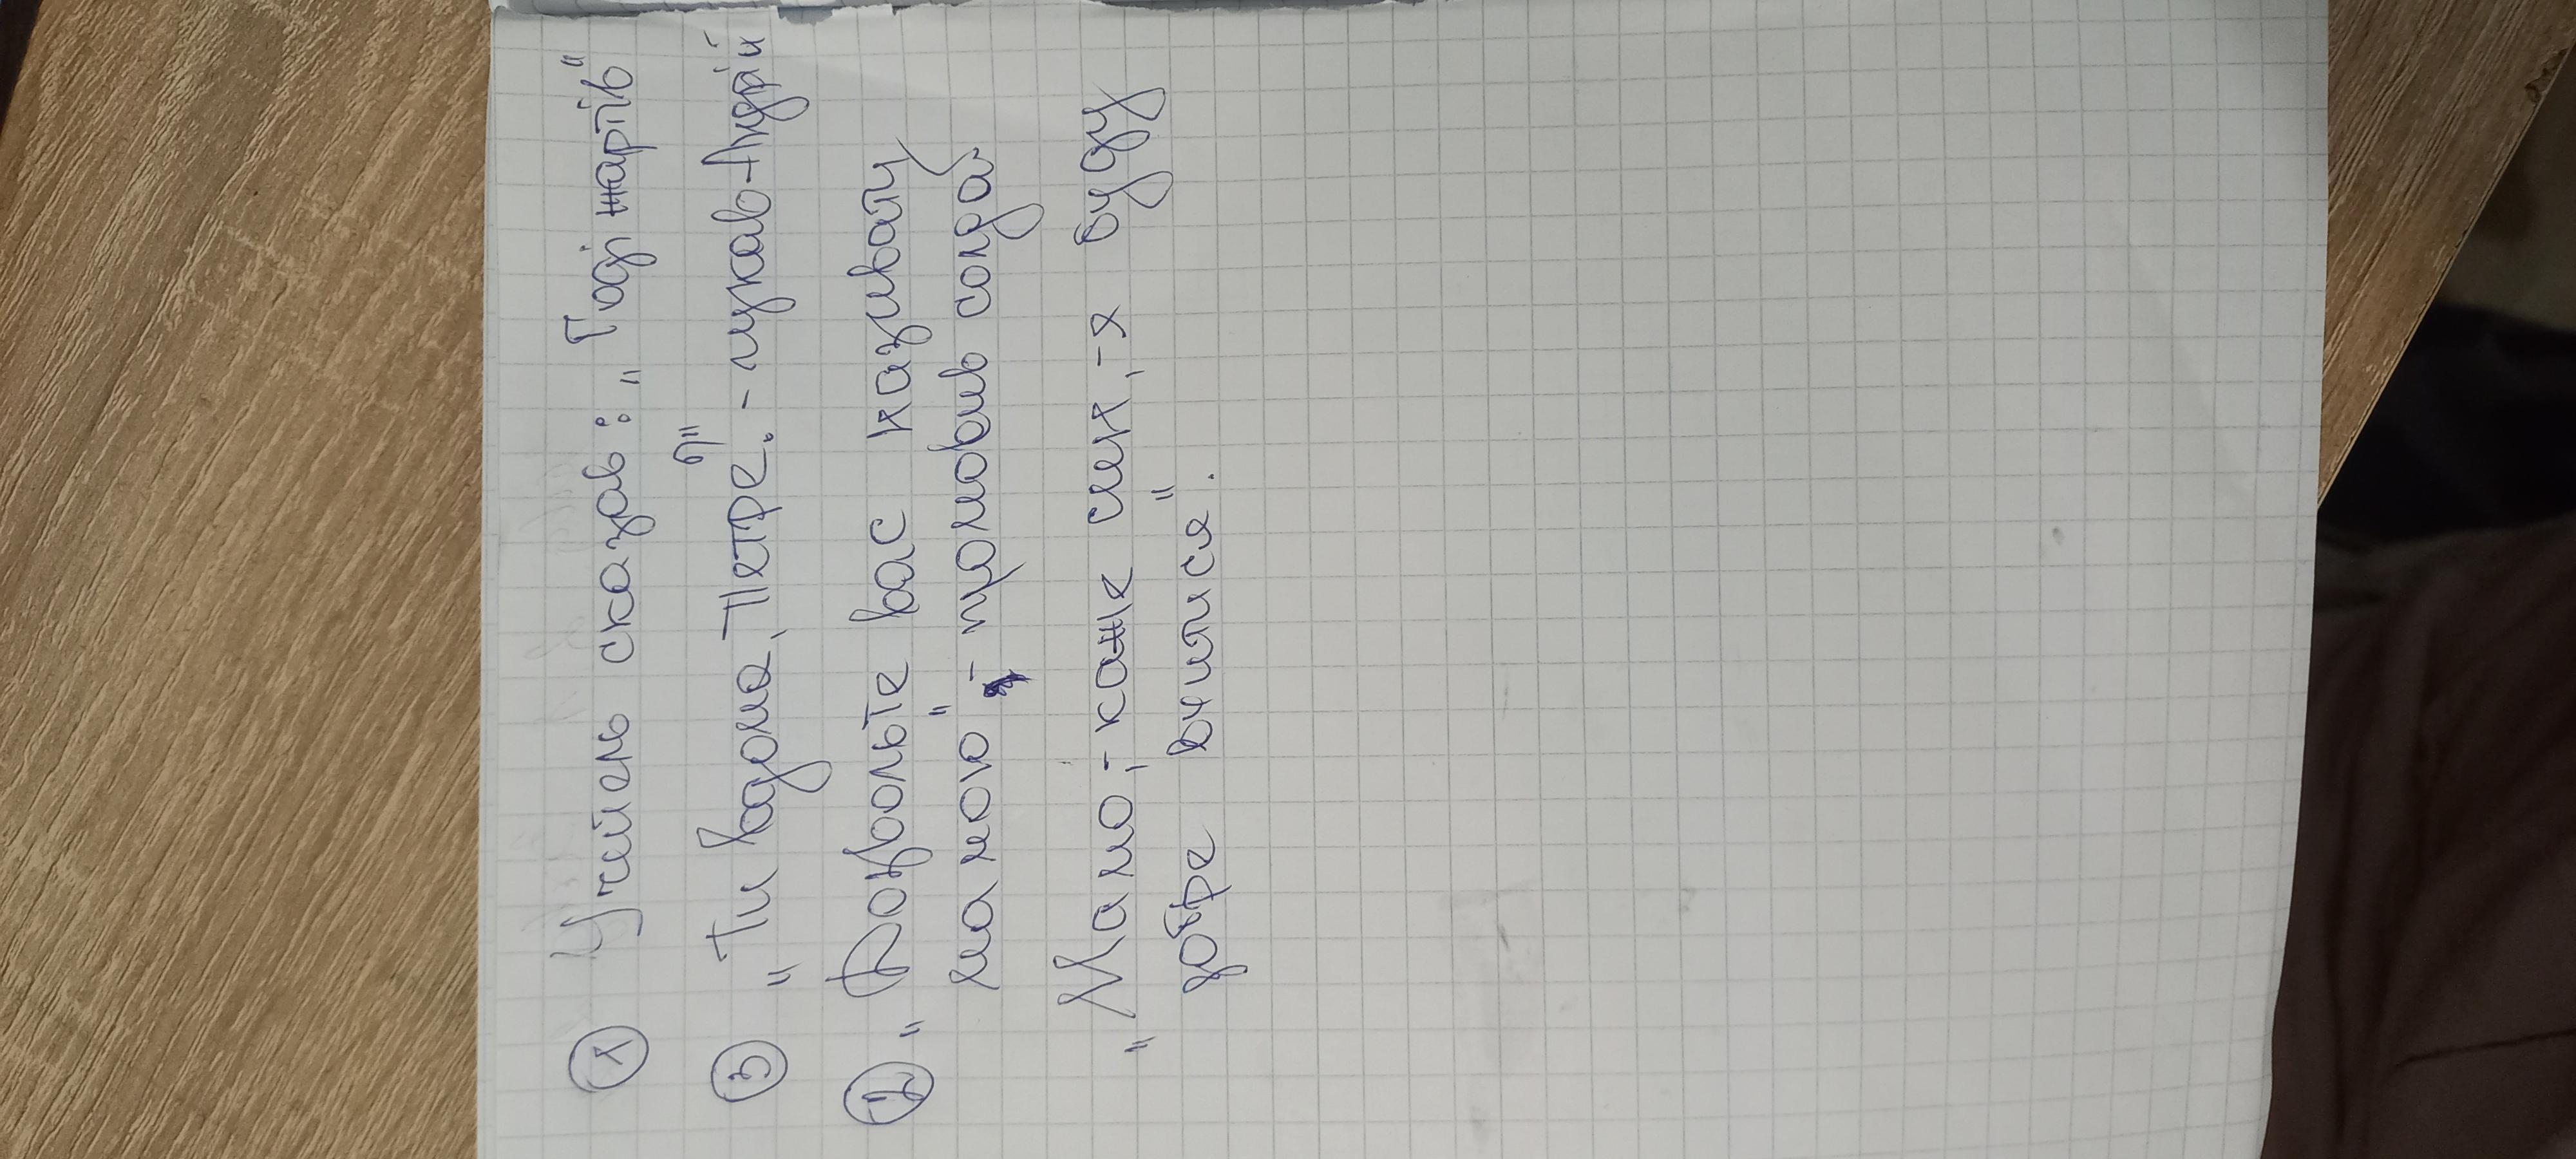 ① Учитель сказав: „Годі жартів"
③ „Ти вдома, Петре?" - гукав Андрій
② „Дозвольте вас називати
мамою" - промовив солда,
„Мамо, - каже син, - я буду
добре вчитися".